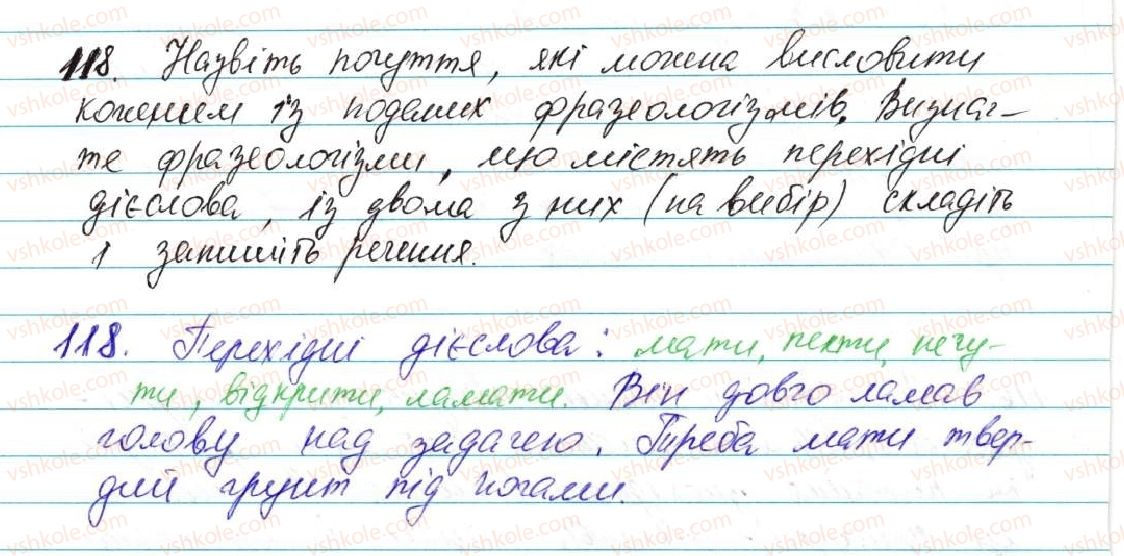 118. Назвіть почуття, які можна висловити
кожним із поданих фразеологізмів. Визнач-
те фразеологізми, що містять перехідні
дієслова, із двома з них (на вибір) складіть
і запишіть речення.
118. Перехідні дієслова: мати, пекти, нечу-
ти, відкрити, ламати. Він довго ламав
голову над задачею. Треба мати твер-
дий грунт під ногами.